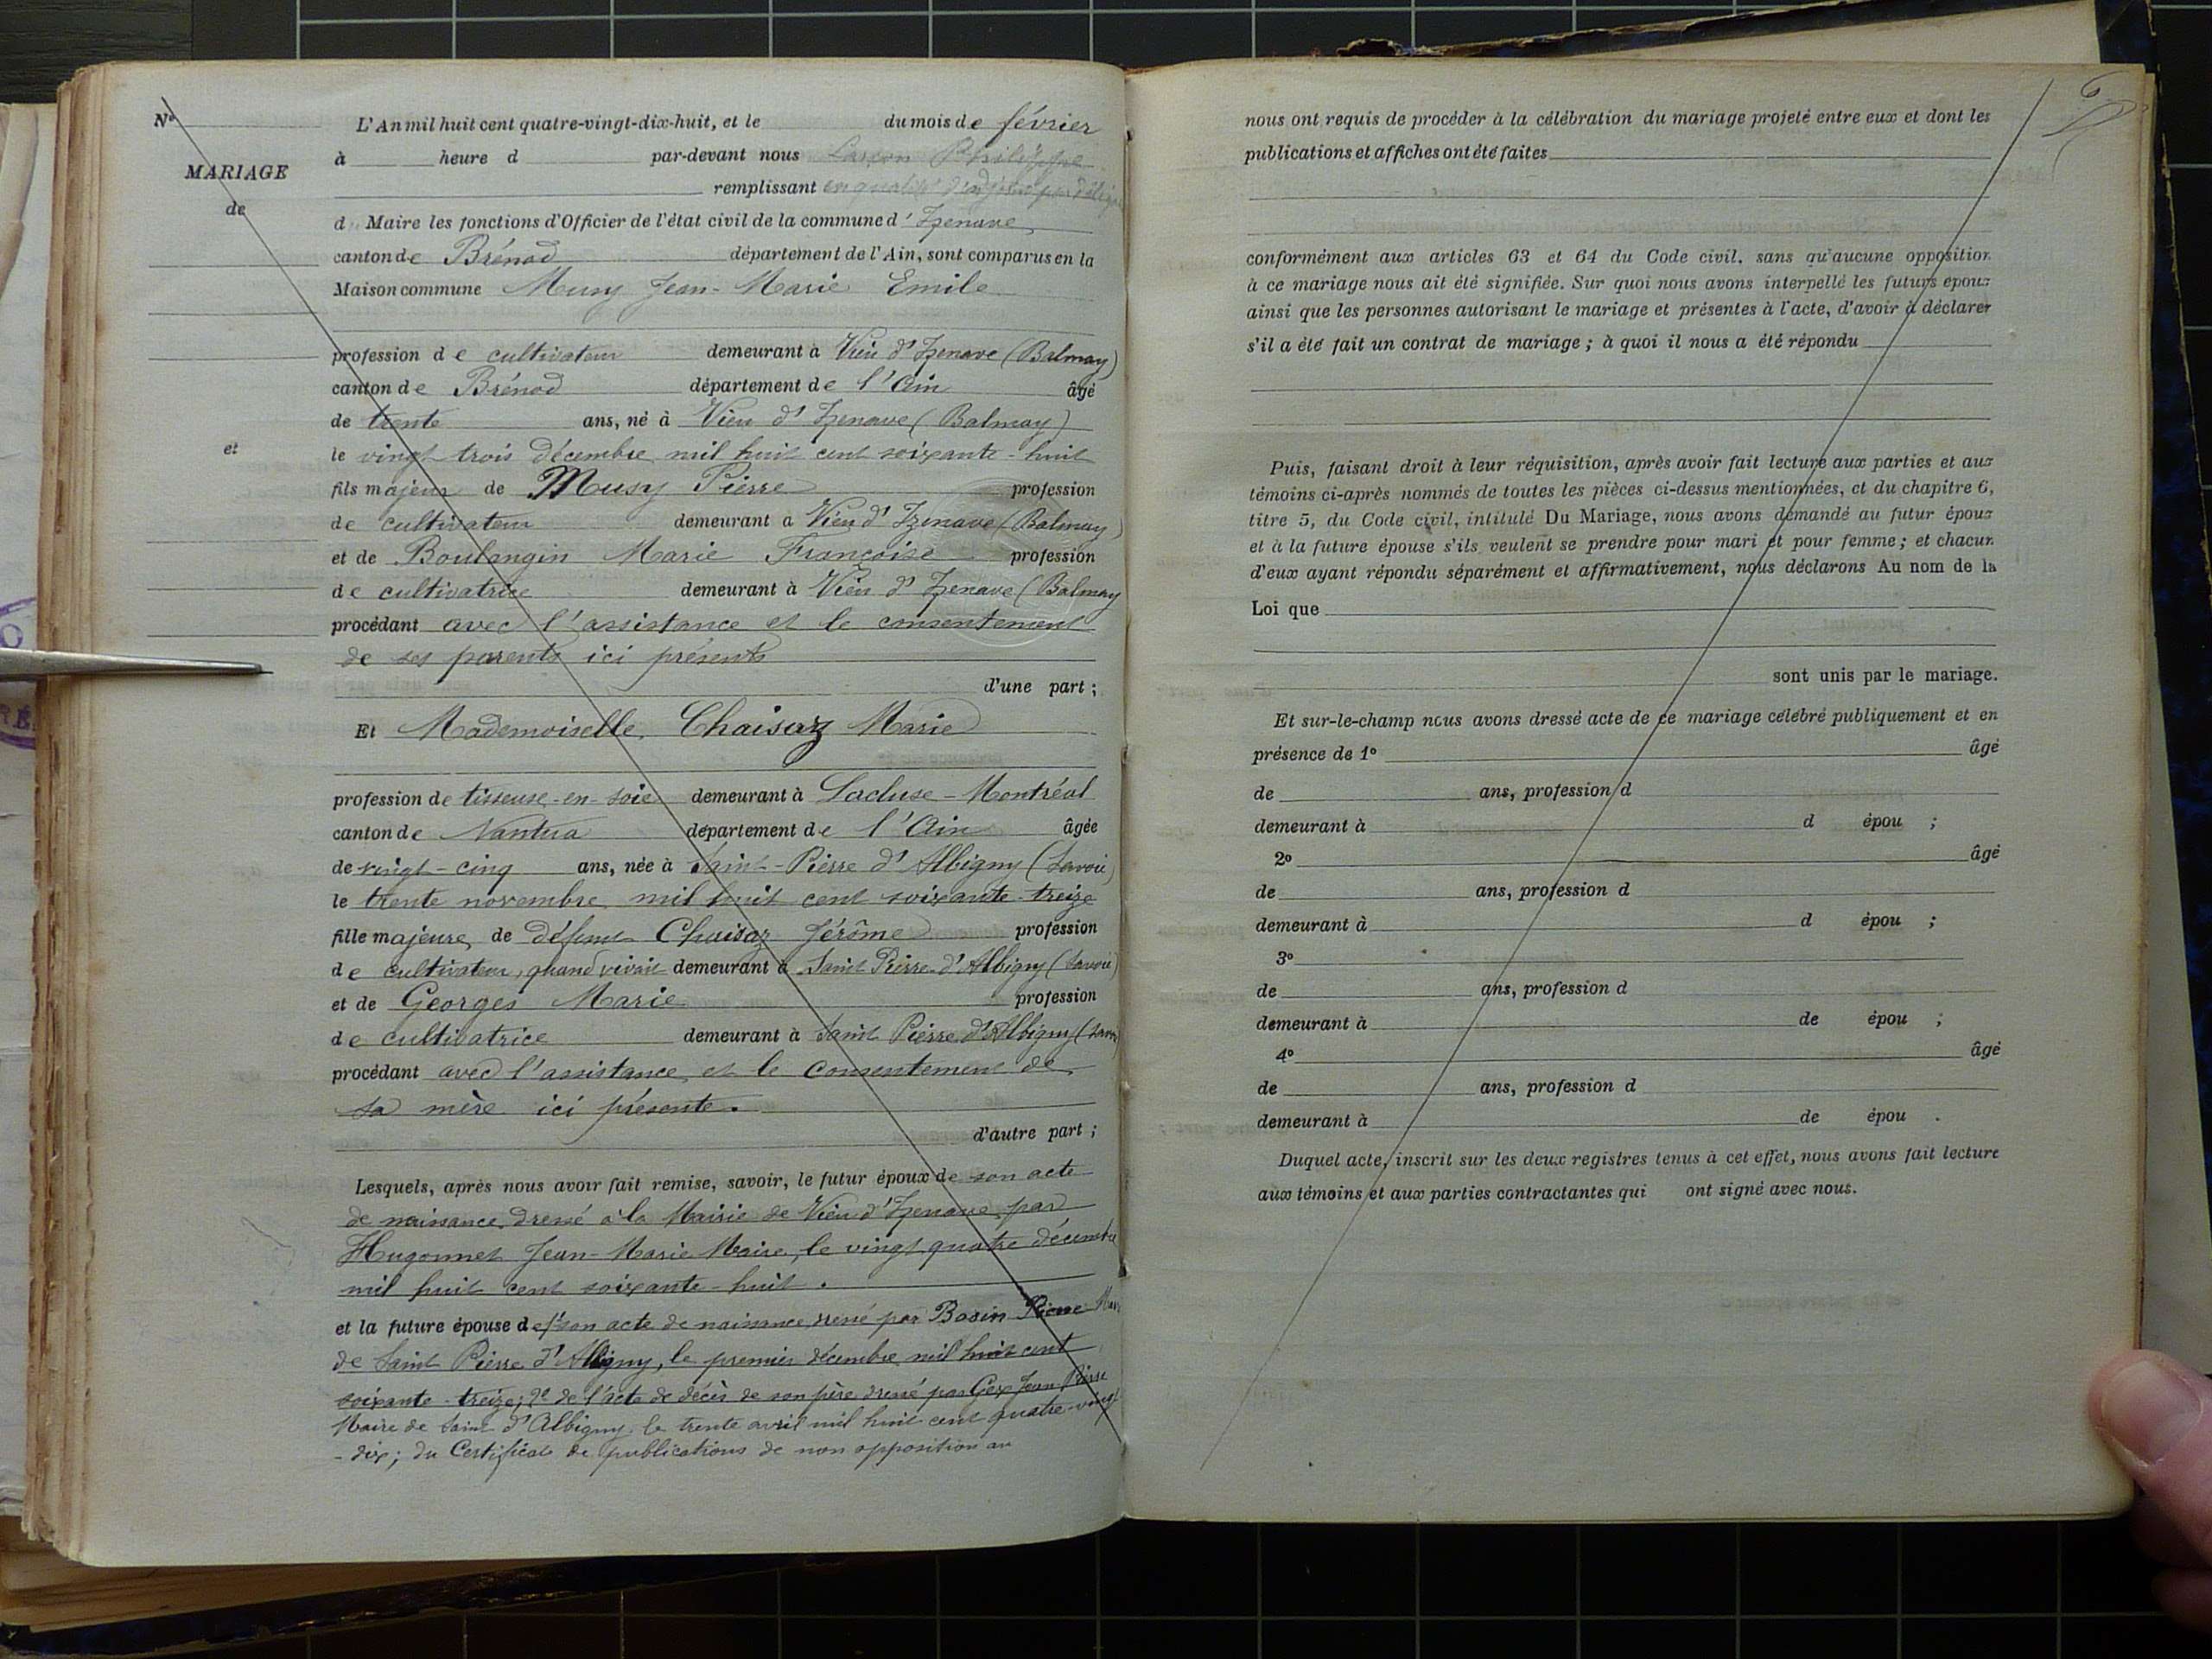 N°
MARIAGE
de
et
L'An mil huit cent quatre-vingt-dix-huit, et le du mois de février
à heure d par-devant nous Philippe
remplissant en qualité d'adjoint par
d Maire les fonctions d'Officier de l'état civil de la commune d'Izenave
canton de Brénod département de l'Ain, sont comparus en la
Maison commune Musy Jean-Marie Emile
profession de cultivateur demeurant à Vieu d'Izenave (Balmay)
canton de Brénod département de l'Ain âgé
de trente ans, né à Vieu d'Izenave (Balmay)
le vingt trois décembre mil huit cent soixante-huit
fils majeur de Musy Pierre profession
de cultivateur demeurant à Vieu d'Izenave (Balmay)
et de Boulangin Marie Françoise profession
de cultivatrice demeurant à Vieu d'Izenave (Balmay
procédant avec l'assistance et le consentement
de ses parents ici présents
d'une part ;
Et Mademoiselle Chaisaz Marie
profession de tisseuse-en-soie demeurant à Lacluse-Montréal
canton de Nantua département de l'Ain âgée
de vingt-cinq ans, née à Saint-Pierre d'Albigny (Savoie)
le trente novembre mil huit cent soixante-treize
fille majeure de défunt Chaisaz Jérôme profession
de cultivateur, quand vivait demeurant à Saint Pierre-d'Albigny (Savoie)
et de Georges Marie profession
de cultivatrice demeurant à Saint Pierre d'Albigny (Savoie
procédant avec l'assistance et le consentement de
sa mère ici présente.
d'autre part ;
Lesquels, après nous avoir fait remise, savoir, le futur époux de son acte
de naissance dressé à la Mairie de Vieu d'Izenave par
Hugonnet Jean-Marie Maire, le vingt quatre décembre
mil huit cent soixante-huit.
et la future épouse de 1° son acte de naissance dressé par Basin Pierre Maire
de Saint Pierre d'Albigny, le premier décembre mil huit cent
soixante-treize; 2° de l'acte de décès de son père dressé par Gex Jean Pierre
Maire de Saint d'Albigny le trente avril mil huit cent quatre-vingt
-dix; du Certificat de publications de non opposition au
6
nous ont requis de procéder à la célébration du mariage projeté entre eux et dont les
publications et affiches ont été faites
conformément aux articles 63 et 64 du Code civil, sans qu'aucune opposition
à ce mariage nous ait été signifiée. Sur quoi nous avons interpellé les futurs epoux
ainsi que les personnes autorisant le mariage et présentes à l'acte, d'avoir à déclarer
s'il a été fait un contrat de mariage ; à quoi il nous a été répondu
Puis, faisant droit à leur réquisition, après avoir fait lecture aux parties et aux
témoins ci-après nommés de toutes les pièces ci-dessus mentionnées, et du chapitre 6,
titre 5, du Code civil, intitulé Du Mariage, nous avons demandé au futur époux
et à la future épouse s'ils veulent se prendre pour mari et pour femme ; et chacun
d'eux ayant répondu séparément et affirmativement, nous déclarons Au nom de la
Loi que
sont unis par le mariage.
Et sur-le-champ nous avons dressé acte de ce mariage célébré publiquement et en
présence de 1° âgé
de ans, profession d
demeurant à d épou ;
2° âgé
de ans, profession d
demeurant à d épou ;
3°
de ans, profession d
demeurant à de épou ;
4° âgé
de ans, profession d
demeurant à de épou .
Duquel acte, inscrit sur les deux registres tenus à cet effet, nous avons fait lecture
aux témoins et aux parties contractantes qui ont signé avec nous.